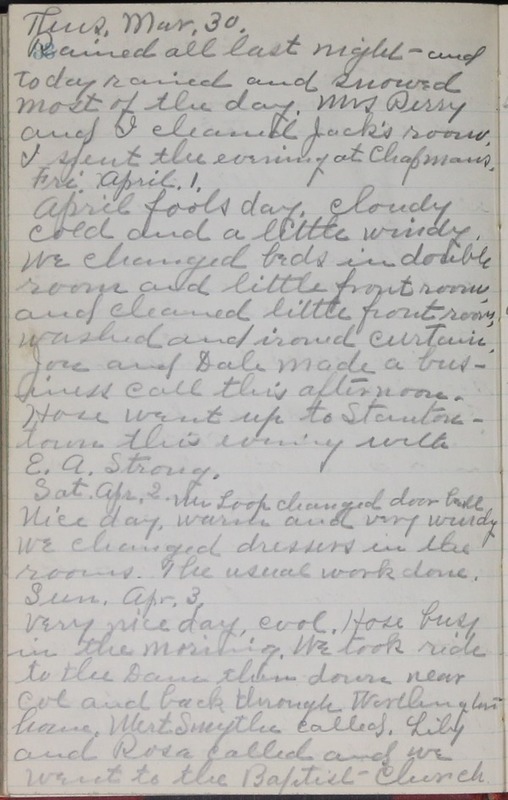 Thus. Mar. 30.
Rained all last night - and
today rained and snowed
most of the day. Mrs Berry
and I cleaned Jack's room.
I spent the evening at Chapmans.
Fri. April. 1.
April fools day. cloudy
cold and a little windy.
We changed beds in double
room and little front room,
and cleaned little front room,
washed and ironed curtain.
Jou and Dale made a bus-
iness call this afternoon.
Hose went up to Stanton-
town this evening with
E. A. Strong.
Sat. Apr. 2. Mr Loop changed door bell
Nice day, warm and very windy
We changed dressers in the
rooms. The usual work done.
Sun. Apr. 3
Very nice day, cool. Hose busy
in the morning. We took ride
to the Dam then down near
Col and back through Worthington
home. Mert Smythe called. Lily
and Rosa called and we
went to the Baptist - Church.